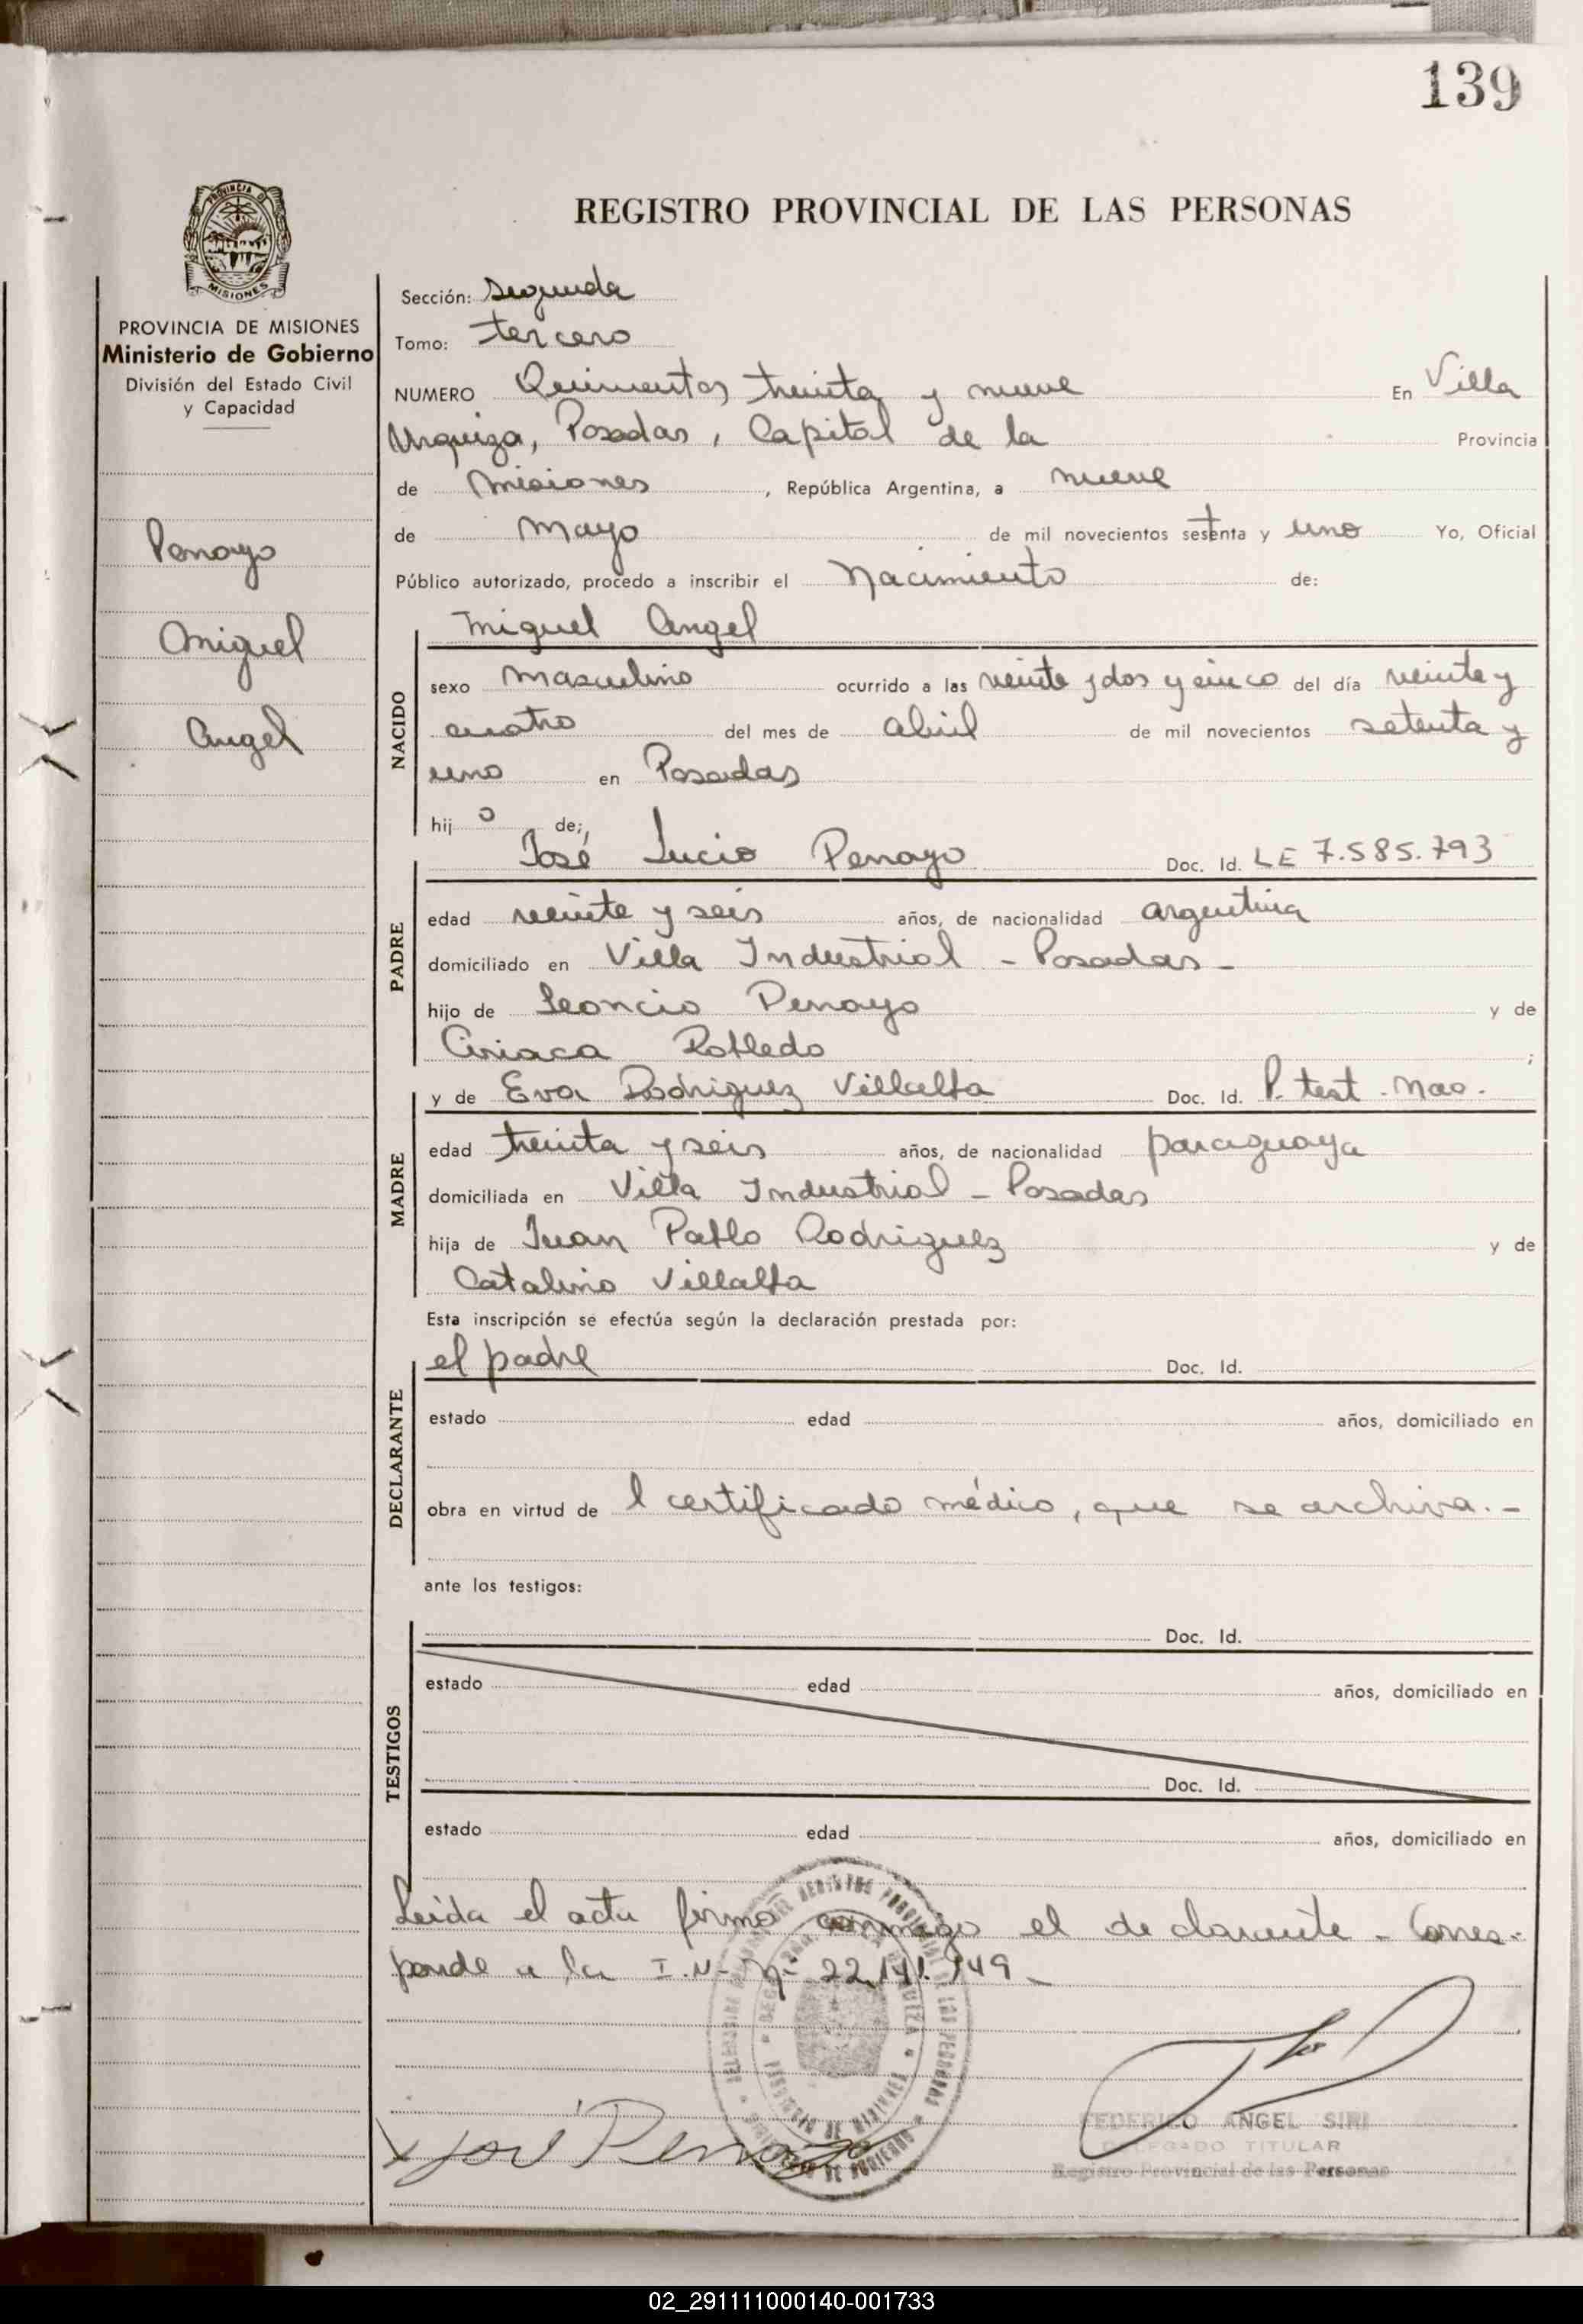 139
PROVINCIA DE
MISIONES
REGISTRO PROVINCIAL DE LAS PERSONAS
PROVINCIA DE MISIONES
Ministerio de Gobierno
División del Estado Civil
y Capacidad
Penayo
Miguel
Angel
Sección: segunda
Tomo: tercero
NUMERO Quinientos treinta y nueve En Villa
Urquiza, Posadas, Capital de la Provincia
de Misiones, República Argentina, a nueve
de Mayo de mil novecientos setenta y uno Yo, Oficial
Público autorizado, procedo a inscribir el Nacimiento de:
Miguel Angel
NACIDO
sexo masculino ocurrido a las veinte y dos y cinco del día veinte y
cuatro del mes de abril de mil novecientos setenta y
uno en Posadas
hijo de;
PADRE
José Lucio Penayo Doc. Id. LE 7.585.793
edad veinte y seis años, de nacionalidad argentina
domiciliado en Villa Industrial - Posadas -
hijo de Leoncio Penayo y de
Ciriaca Robledo ;
MADRE
y de Eva Rodriguez Villalba Doc. Id. P. test. nac.
edad treinta y seis años, de nacionalidad paraguaya
domiciliada en Villa Industrial - Posadas
hija de Juan Pablo Rodriguez y de
Catalina Villalba
Esta inscripción se efectúa según la declaración prestada por:
DECLARANTE
el padre Doc. Id.
estado edad años, domiciliado en
obra en virtud de l certificado médico, que se archiva. -
ante los testigos:
TESTIGOS
Doc. Id.
estado edad años, domiciliado en
Doc. Id.
estado edad años, domiciliado en
Leida el acta firma conmigo el declarante - Corres-
ponde a la I.N. Nº 22.141.749 -
José Penayo
FEDERICO ANGEL SIRI
DELEGADO TITULAR
Registro Provincial de las Personas
02_291111000140-001733